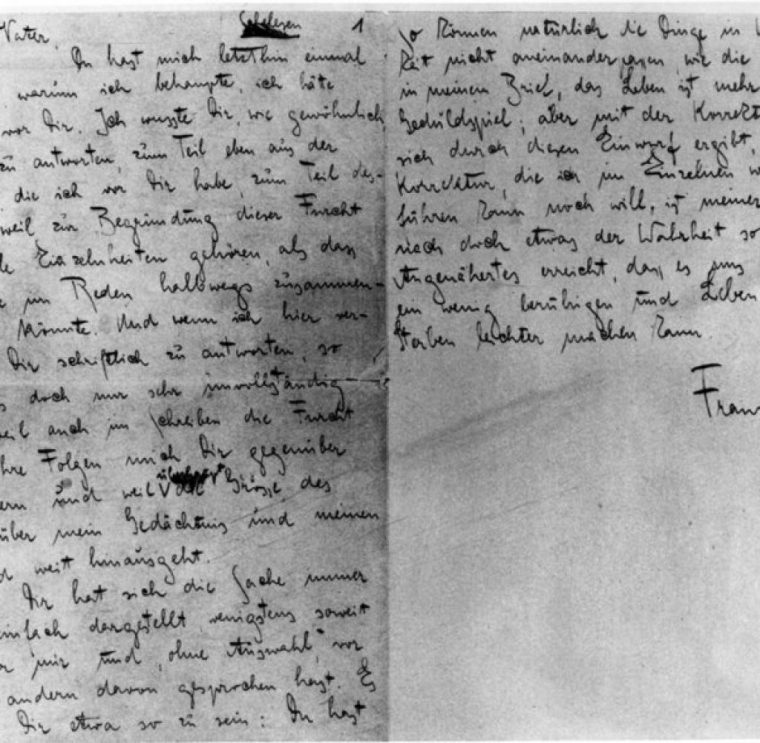 Vater,
Schelesen 1
Du hast mich letzthin einmal
warum ich behaupte, ich hätte
vor Dir. Ich wusste Dir, wie gewöhnlich,
zu antworten, zum Teil eben aus der
die ich vor Dir habe, zum Teil des-
weil zur Begründung dieser Furcht
Einzelnheiten gehören, als dass
im Reden halbwegs zusammen-
könnte. Und wenn ich hier ver-
Dir schriftlich zu antworten, so
doch nur sehr unvollständig
auch im Schreiben die Furcht
Folgen mich Dir gegenüber
und weil die Grösse des
über mein Gedächtnis und meinen
weit hinausgeht.
Dir hat sich die Sache immer
einfach dargestellt, wenigstens soweit
mir und, ohne Auswahl, vor
andern davon gesprochen hast. Es
Dir etwa so zu sein: Du hast
so können natürlich die Dinge in
keit nicht aneinanderpassen wie die
in meinem Brief, das Leben ist mehr
Geduldspiel; aber mit der Korrekt
sich durch diesen Einwurf ergibt,
Korrektur, die ich im Einzelnen
führen kann noch will, ist meiner
nach doch etwas der Wahrheit so
Angenähertes erreicht, dass es uns
ein wenig beruhigen und Leben
Sterben leichter machen kann.
Franz